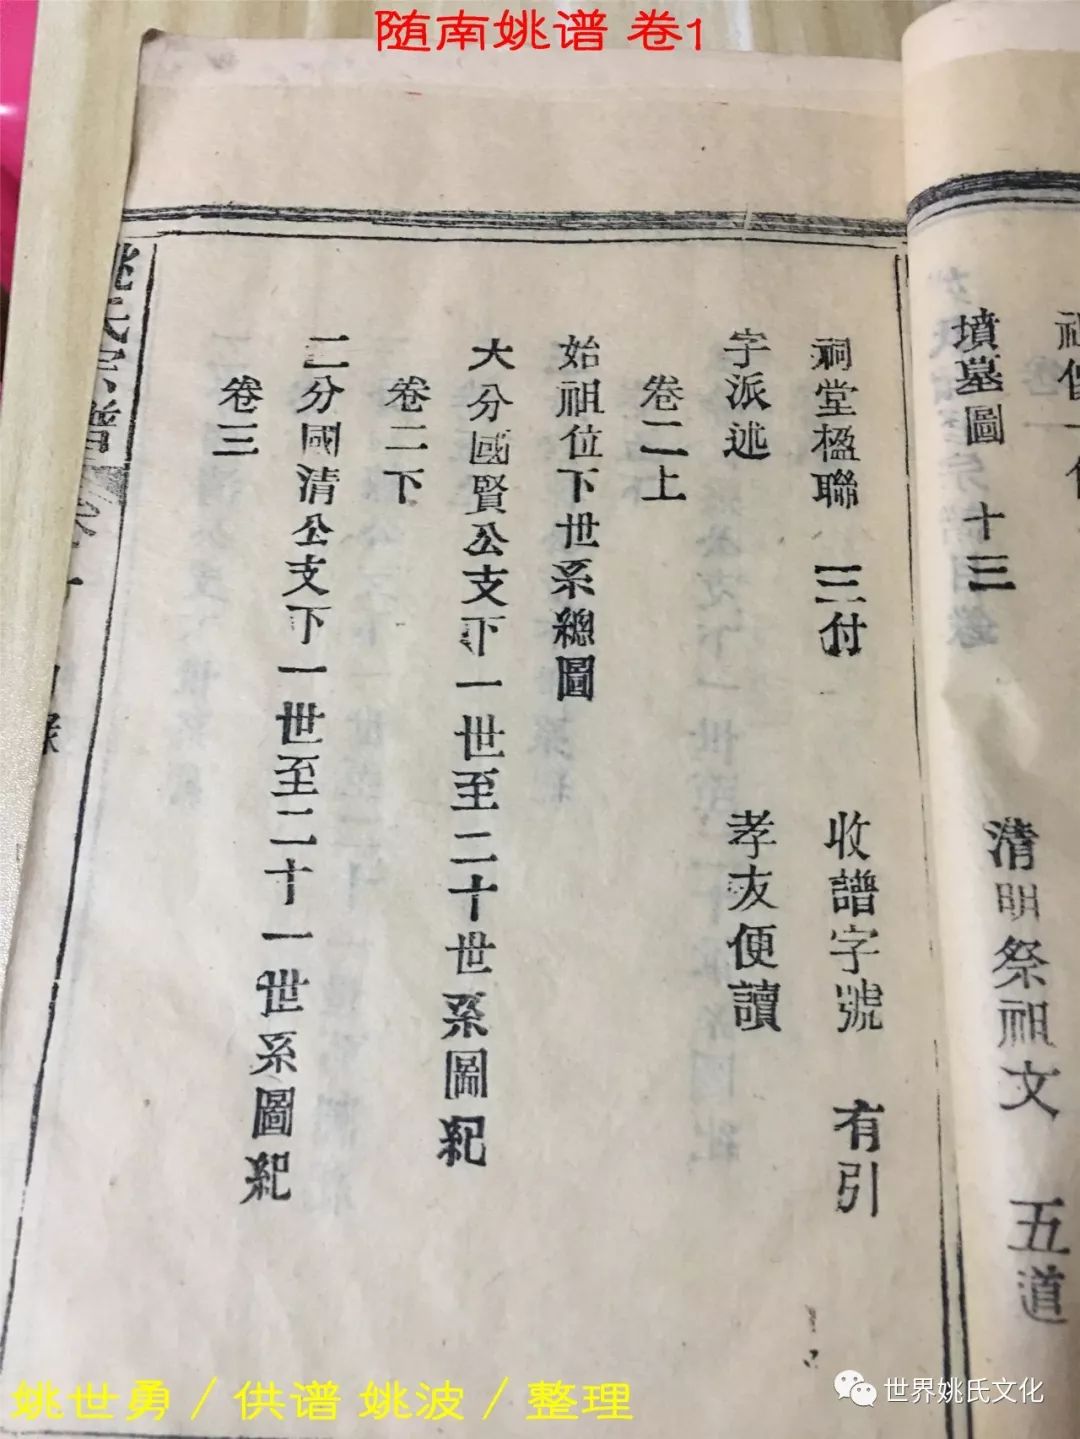 随南姚谱 卷1
墳墓圖 十三 清明祭祖文 五道
祠堂楹聯 三付 收譜字號 有引
字派述 孝友便讀
卷二上
始祖位下世系總圖
大分國賢公支下一世至二十世系圖紀
卷二下
二分國清公支下一世至二十一世系圖紀
卷三
姚氏宗譜
姚世勇/供谱 姚波/整理
世界姚氏文化